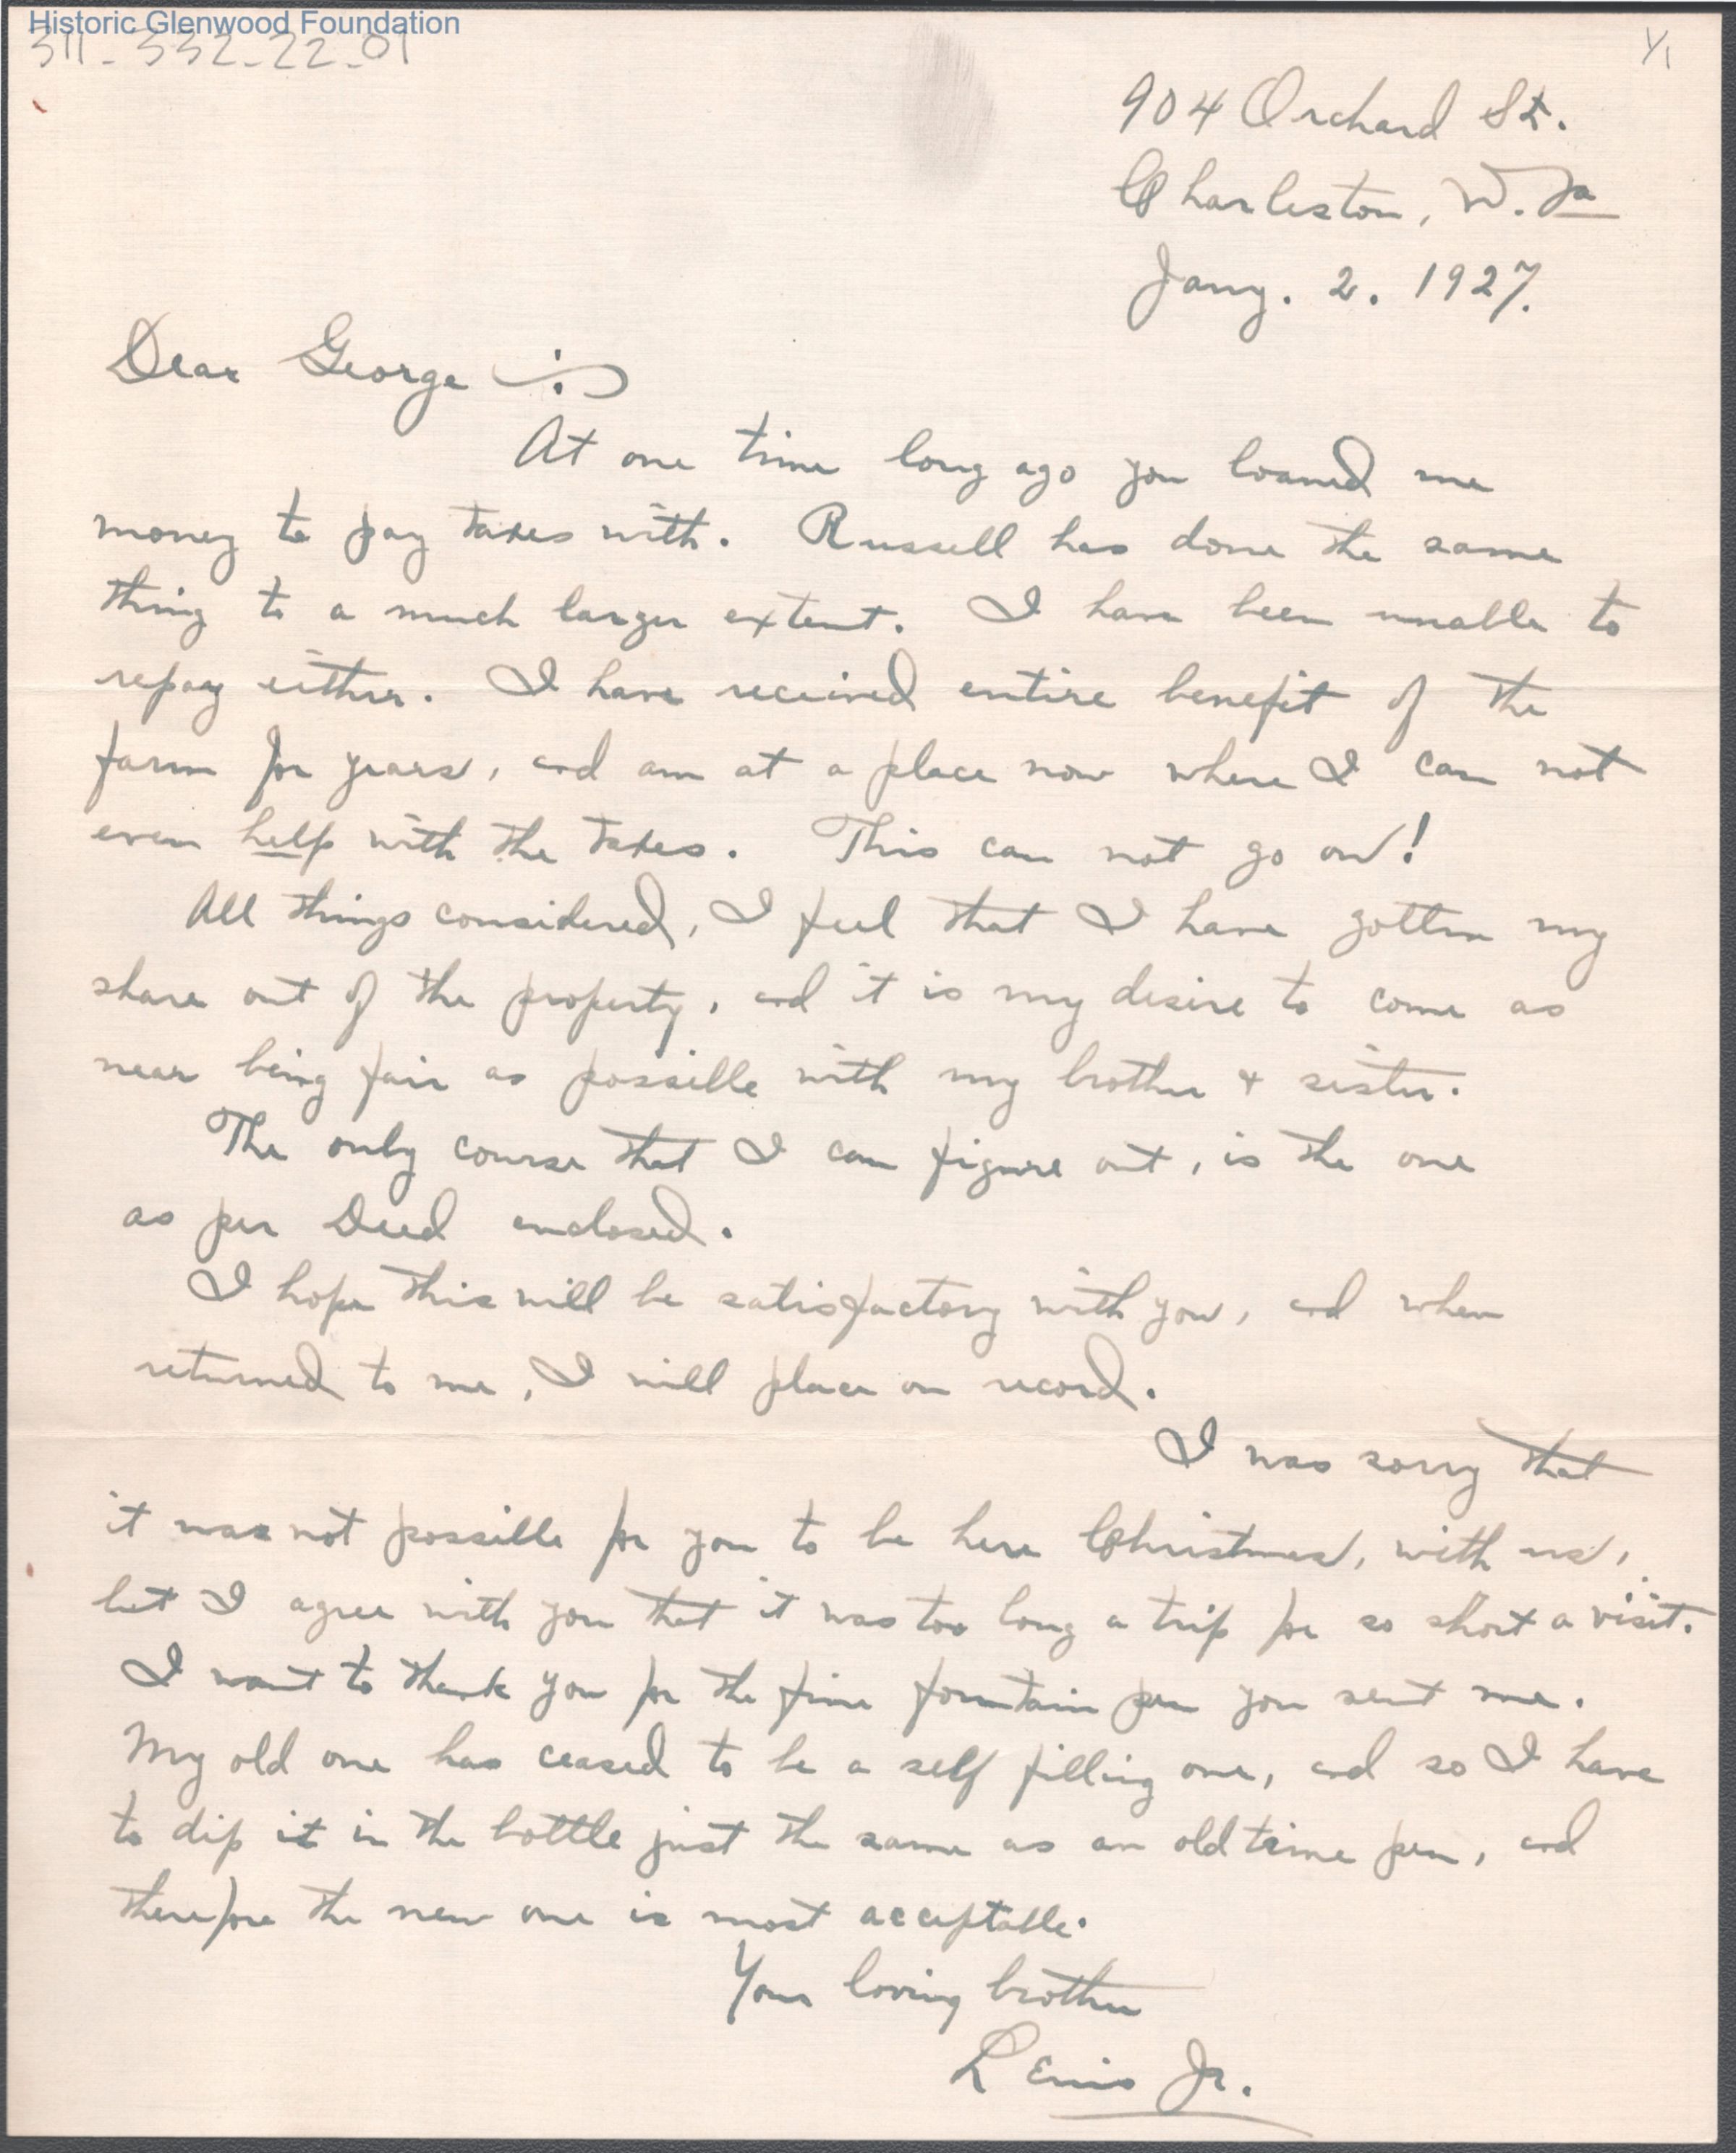 Historic Glenwood Foundation
311-332-22-01
1/1
904 Orchard St.
Charleston, W. Va
Jany. 2. 1927.
Dear George :
At one time long ago you loaned me
money to pay taxes with. Russell has done the same
thing to a much larger extent. I have been unable to
repay either. I have received entire benefit of the
farm for years, and am at a place now where I can not
even help with the taxes. This can not go on!
All things considered, I feel that I have gotten my
share out of the property, and it is my desire to come as
near being fair as possible with my brother + sister.
The only course that I can figure out, is the one
as per Deed enclosed.
I hope this will be satisfactory with you, and when
returned to me, I will place on record.
I was sorry that
it was not possible for you to be here Christmas, with us,
but I agree with you that it was too long a trip for so short a visit.
I want to thank you for the fine fountain pen you sent me.
My old one has ceased to be a self filling one, and so I have
to dip it in the bottle just the same as an old time pen, and
therefore the new one is most acceptable.
Your loving brother
Lewis Jr.